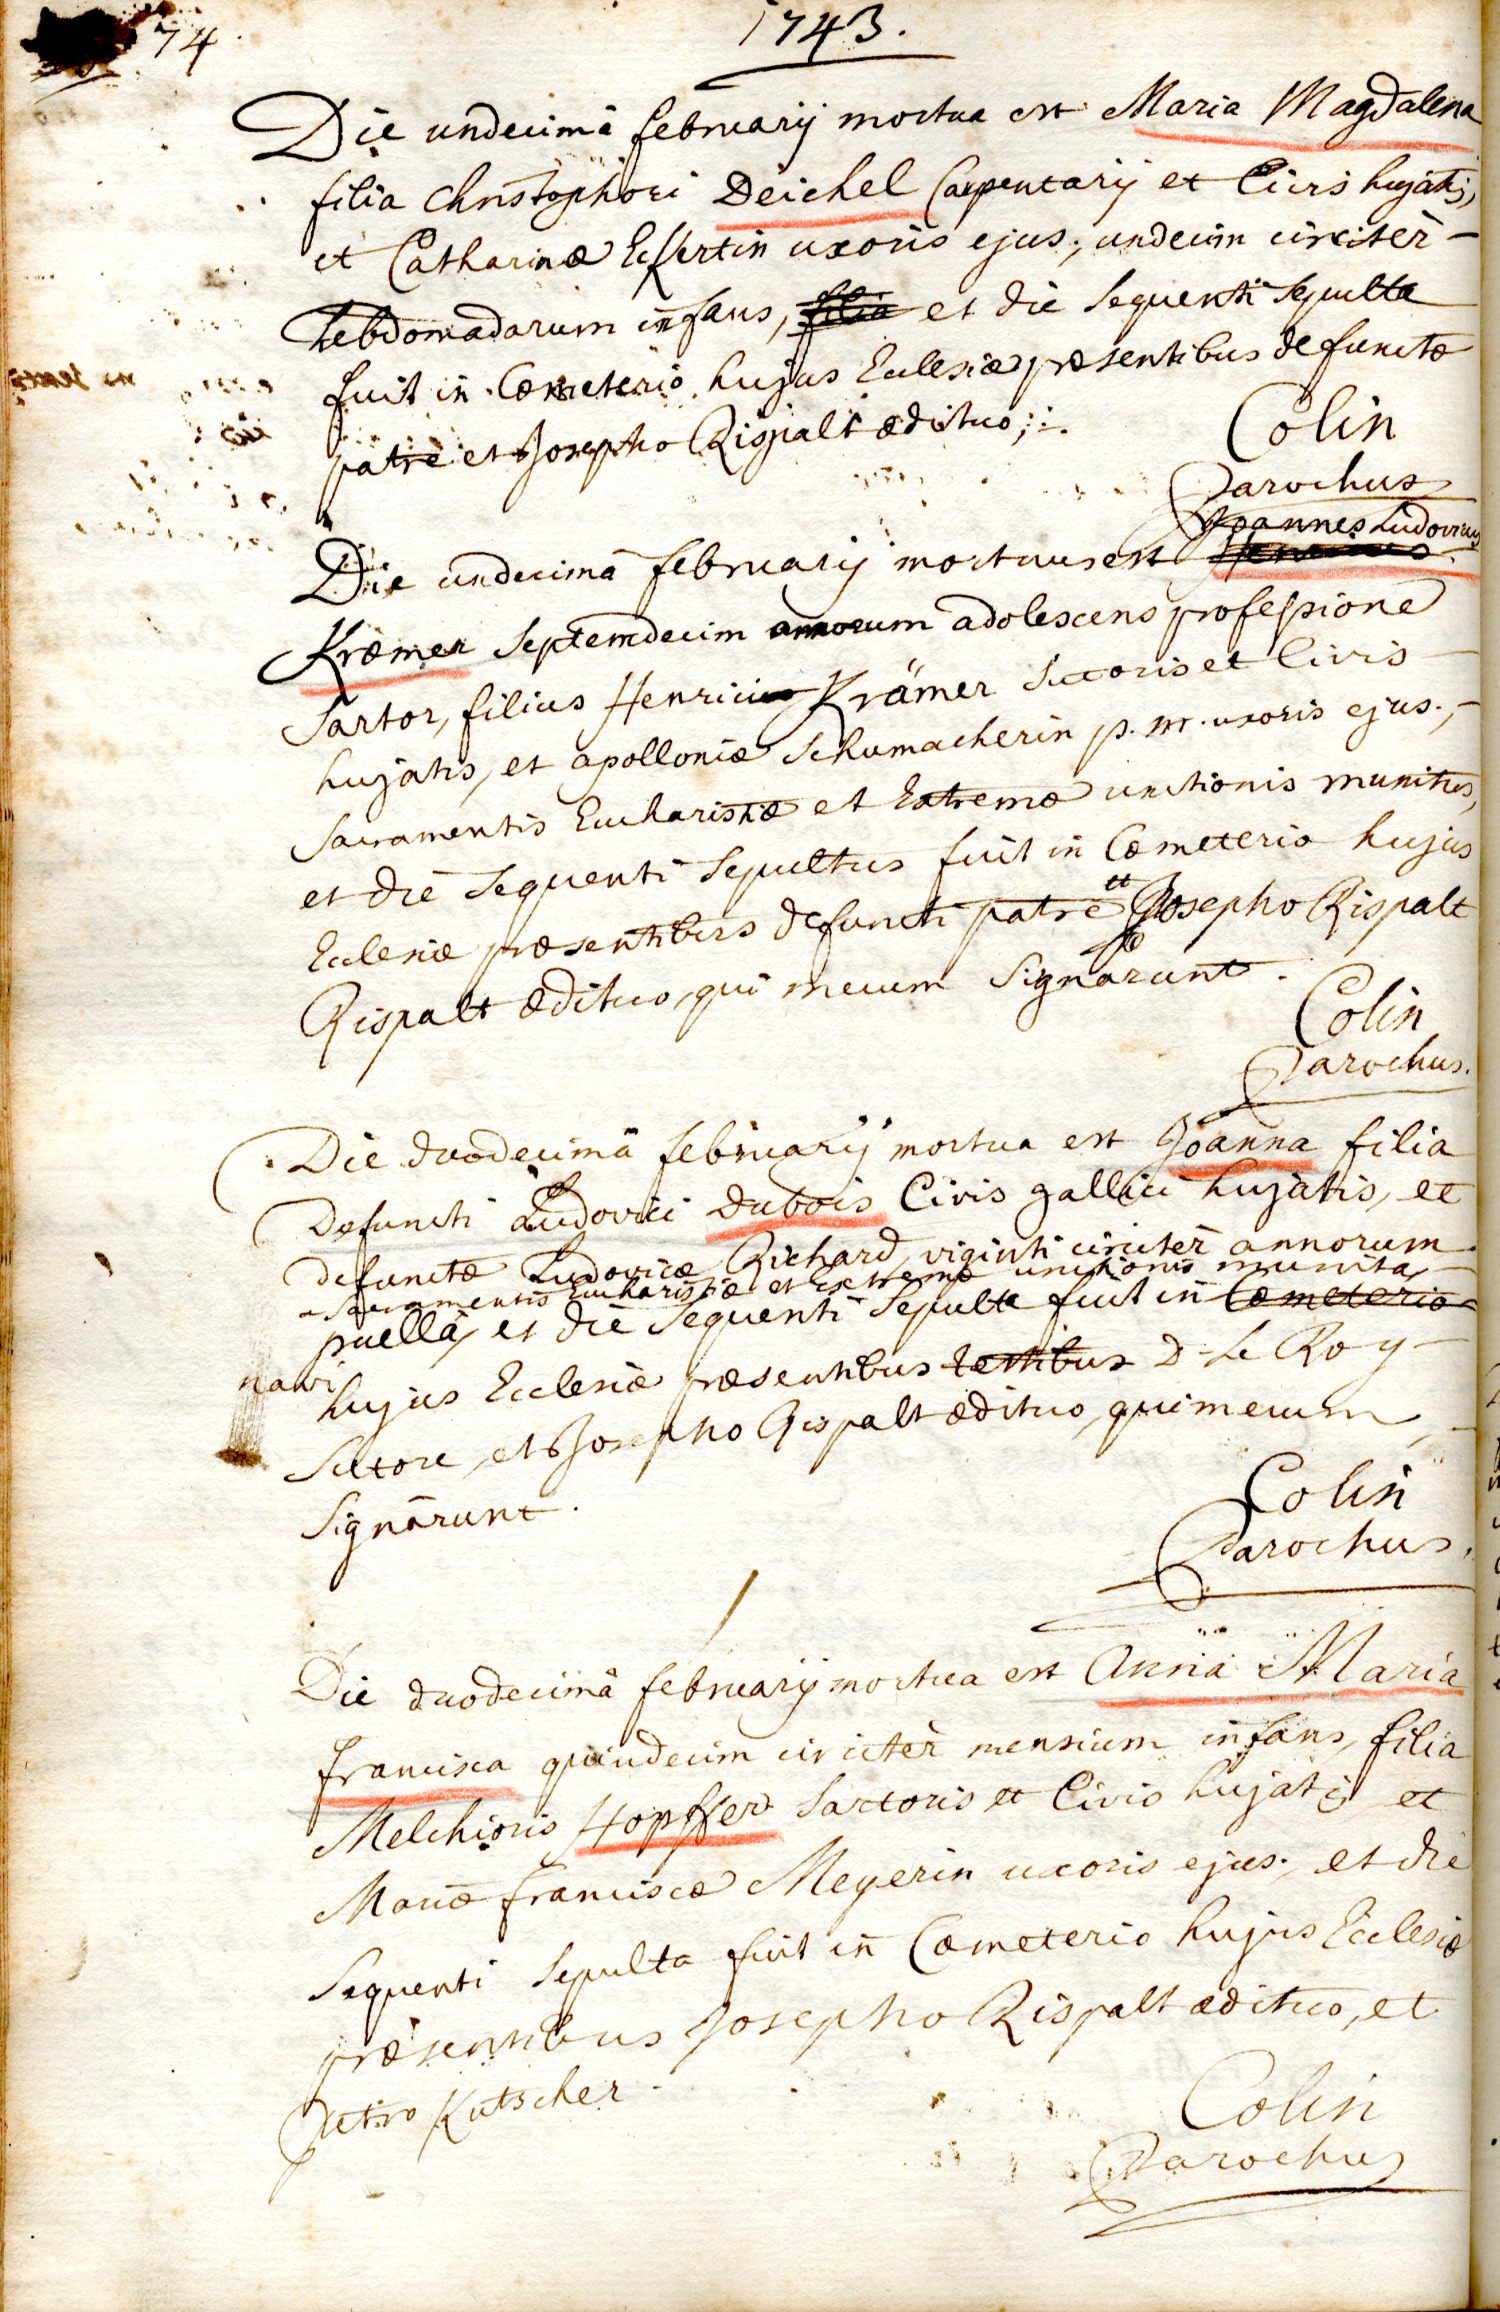 74.
1743.
Die undecimâ februarij mortua est Maria Magdalena
filia Christophori Deichel Carpentarij et Civis hujatis,
et Catharinæ Eckertin uxoris ejus, undecim circitèr
hebdomadarum infans, filia et die sequenti sepulta
fuit in Cœmeterio hujus Ecclesiæ præsentibus defunctæ
patre et Josepho Rispalt ædituo;
Colin
Parochus
Joannes Ludovicus
Die undecimâ februarij mortuus est Henricus
Kræmer septemdecim annorum adolescens professione
sartor, filius Henrici Krämer sutoris et Civis
hujatis, et apolloniæ Schumacherin p. m. uxoris ejus,
sacramentis Eucharistiæ et Extremæ unctionis munitus,
et die sequenti sepultus fuit in Cœmeterio hujus
Ecclesiæ præsentibus defuncti patre et Josepho Rispalt
Rispalt ædituo, qui mecum signarunt.
Colin
Parochus.
Die duodecimâ februarij mortua est Joanna filia
Defuncti Ludovici dubois Civis gallici hujatis, et
defunctæ Ludovicæ Richard, viginti circitèr annorum
sacramentis Eucharistiæ et Extremæ unctionis munita
puella, et die sequenti sepulta fuit in Cœmeterio
navi
hujus Ecclesiæ præsentibus testibus D. Le Roy
sutore, et Josepho Rispalt ædituo, qui mecum
signârunt.
Colin
Parochus.
Die duodecimâ februarij mortua est Anna Maria
francisca quindecim circitèr mensium infans, filia
Melchioris Hopffer sartoris et Civis hujatis et
Mariæ franciscæ Meyerin uxoris ejus, et die
sequenti sepulta fuit in Cœmeterio hujus Ecclesiæ
præsentibus Josepho Rispalt ædituo, et
petro Kutscher.
Colin
Parochus